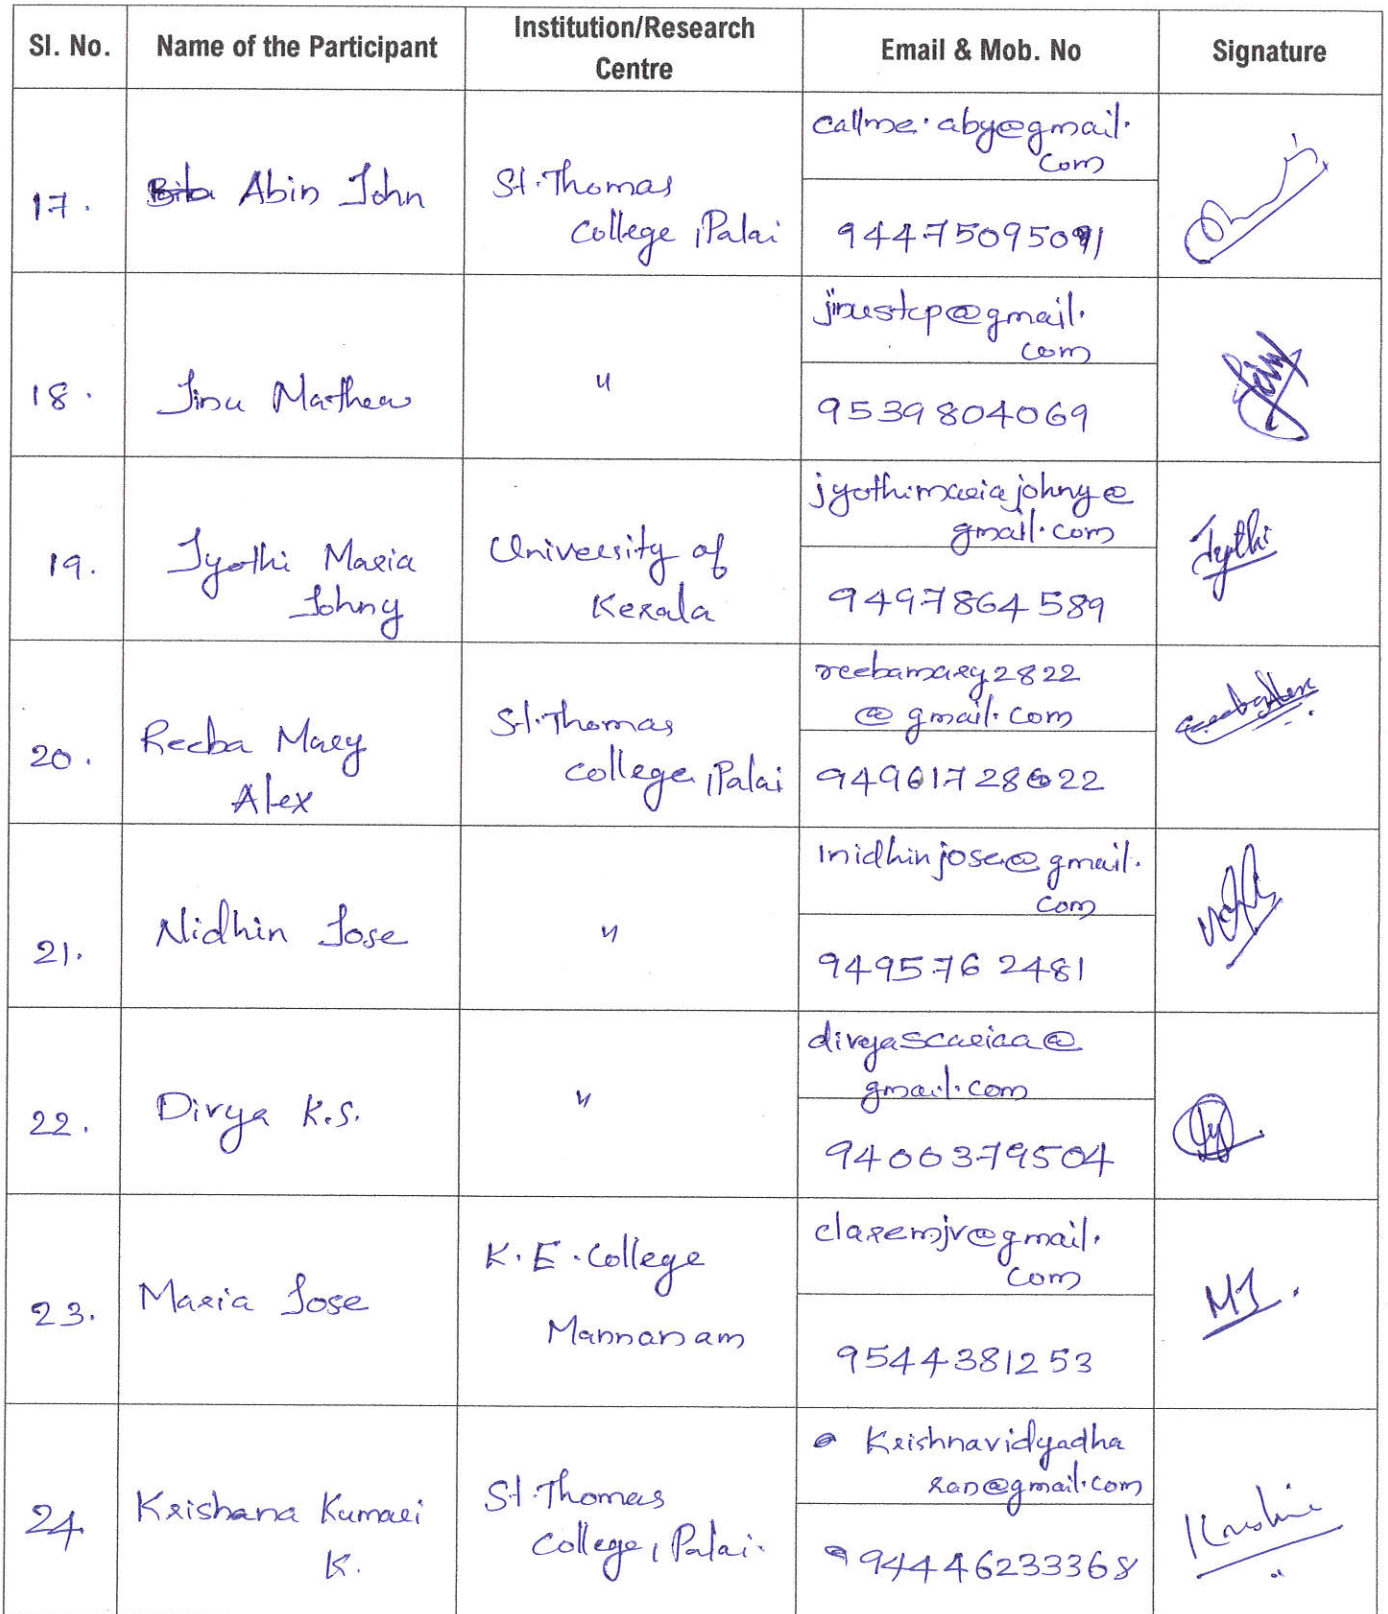 Sl. No. Name of the Participant Institution/Research Centre Email & Mob. No Signature
17. Abin John St. Thomas College, Palai callme.aby@gmail.com
18. Jinu Mathew 〃 jinustcp@gmail.com
9539804069
19. Jyothi Maria Johny University of Kerala jyothimariajohny@gmail.com
9497864589
Jyothi
20. Reeba Mary Alex St. Thomas College, Palai reebamary2822@gmail.com
21. Nidhin Jose 〃 inidhinjose@gmail.com
9495762481
22. Divya K.S. 〃
9400379504
23. Maria Jose K.E. College Mannanam claremjv@gmail.com
9544381253
MJ.
24. Krishana Kumari K. St. Thomas College, Palai. Krishnavidyadharan@gmail.com